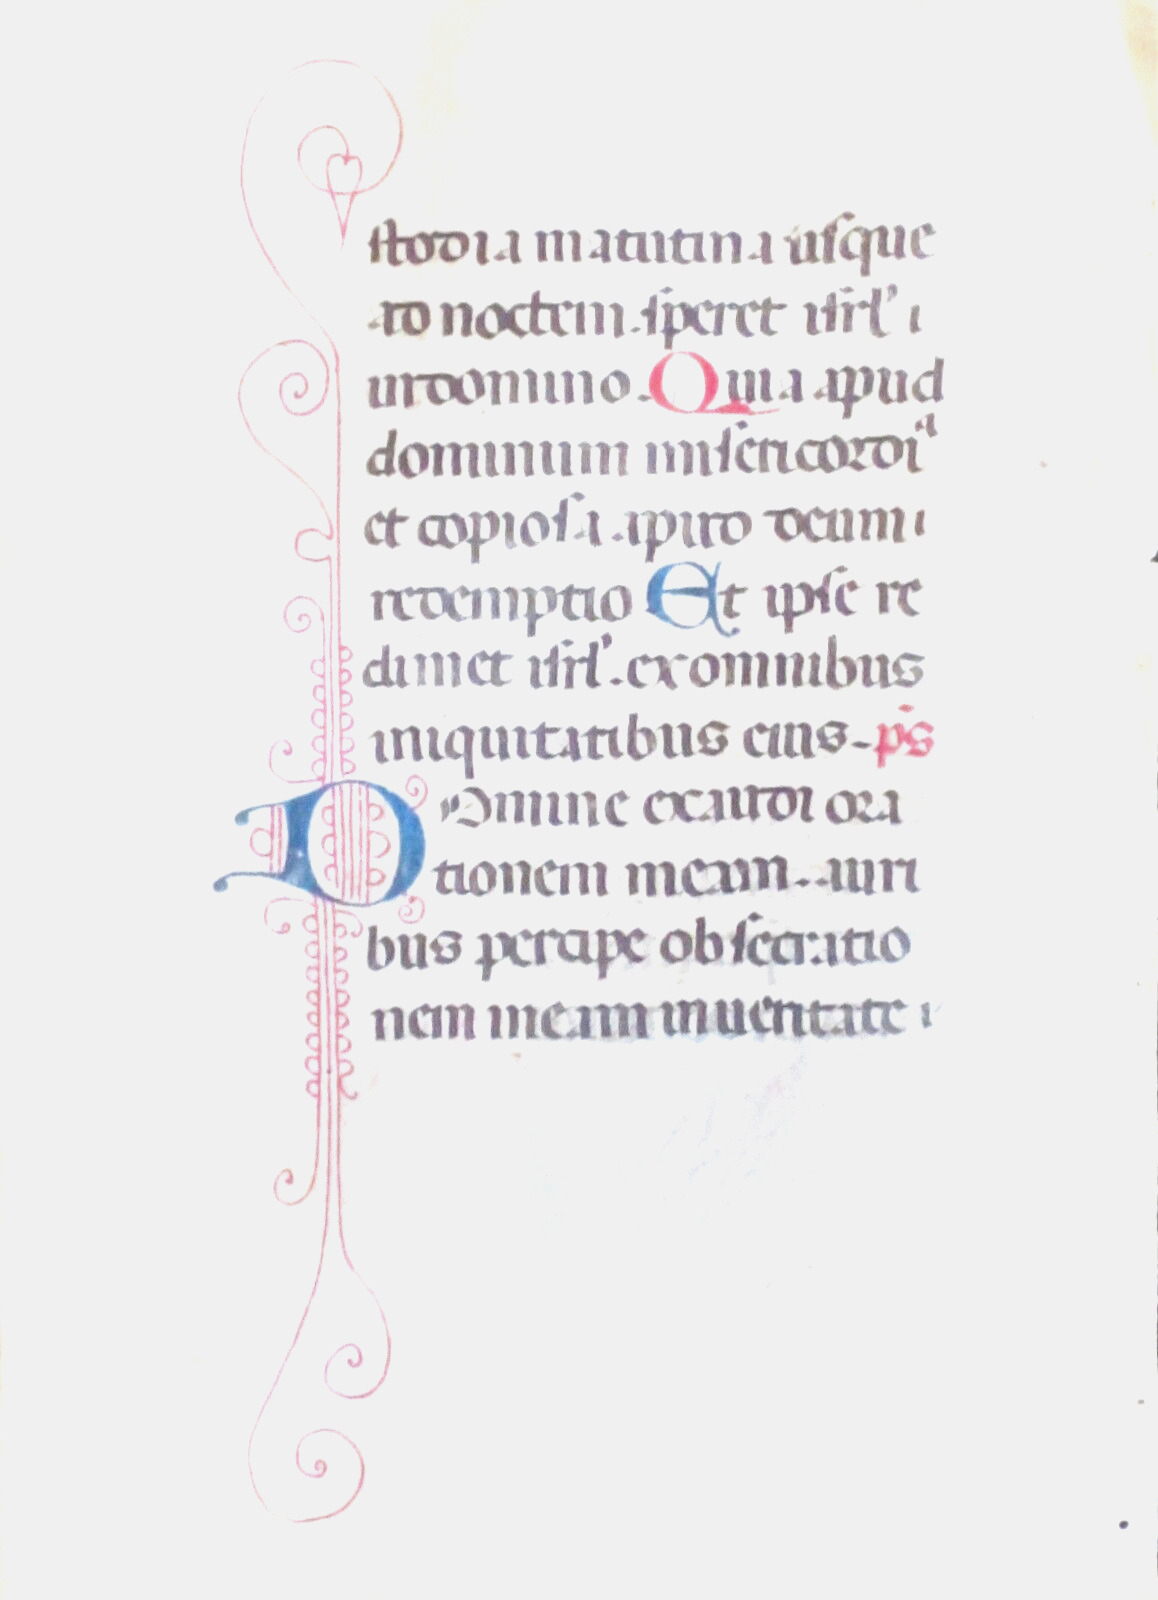 stodia matutina usque
ad noctem. speret isrl' i
in domino. Quia apud
dominum misericordia
et copiosa apud deum i
redemptio Et ipse re
dimet isrl'. ex omnibus
iniquitatibus eius. ps
Domine exaudi ora
tionem meam. auri
bus percipe obsecratio
nem meam in ueritate i